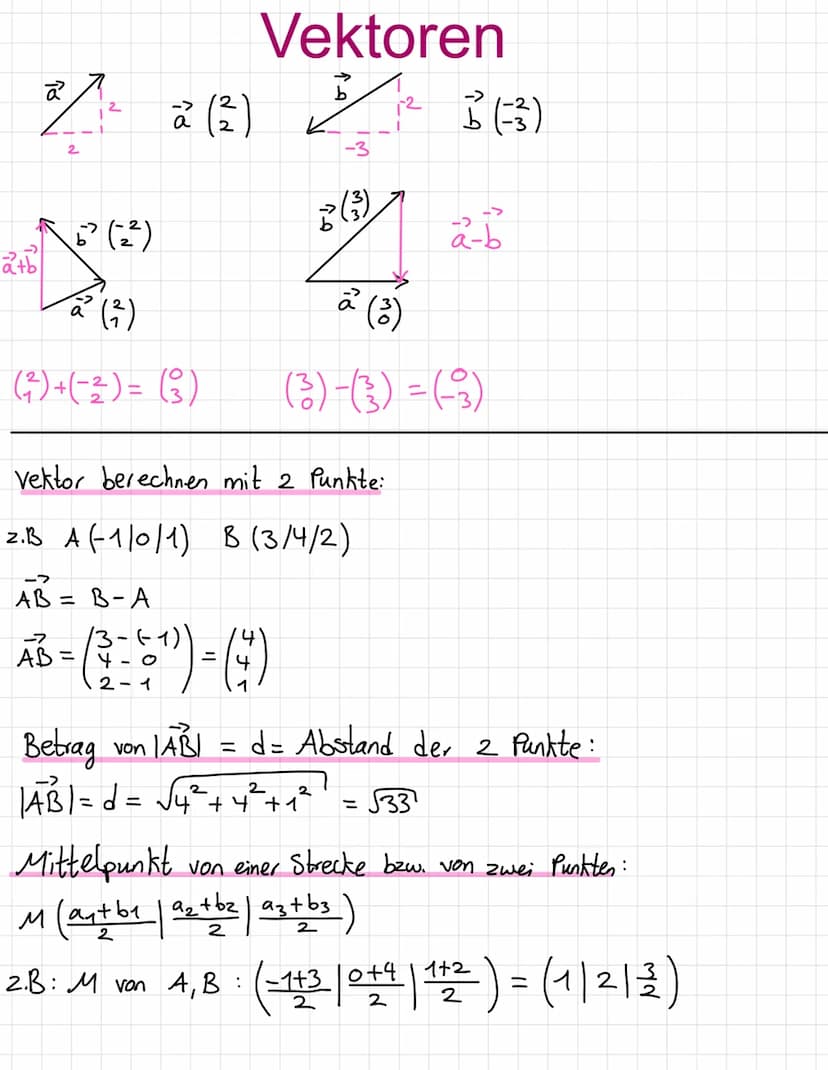 Vektoren
a⃗ 2 2 a⃗ (2 2) b⃗ -2 -3 b⃗ (-2 -3)
b⃗ (-2 2) b⃗ (3 3) a⃗-b⃗
a⃗+b⃗ a⃗ (2 1) a⃗ (3 0)
(2 1)+(-2 2)= (0 3) (3 0)-(3 3)=(0 -3)
Vektor berechnen mit 2 Punkte:
z.B A(-1/0/1) B(3/4/2)
AB⃗ = B-A
AB⃗ = (3-(-1) 4-0 2-1) = (4 4 1)
Betrag von |AB⃗| = d = Abstand der 2 Punkte:
|AB⃗| = d = √4²+4²+1² = √33
Mittelpunkt von einer Strecke bzw. von zwei Punkten:
M (a1+b1/2 | a2+b2/2 | a3+b3/2)
z.B: M von A,B : (-1+3/2 | 0+4/2 | 1+2/2) = (1|2|3/2)